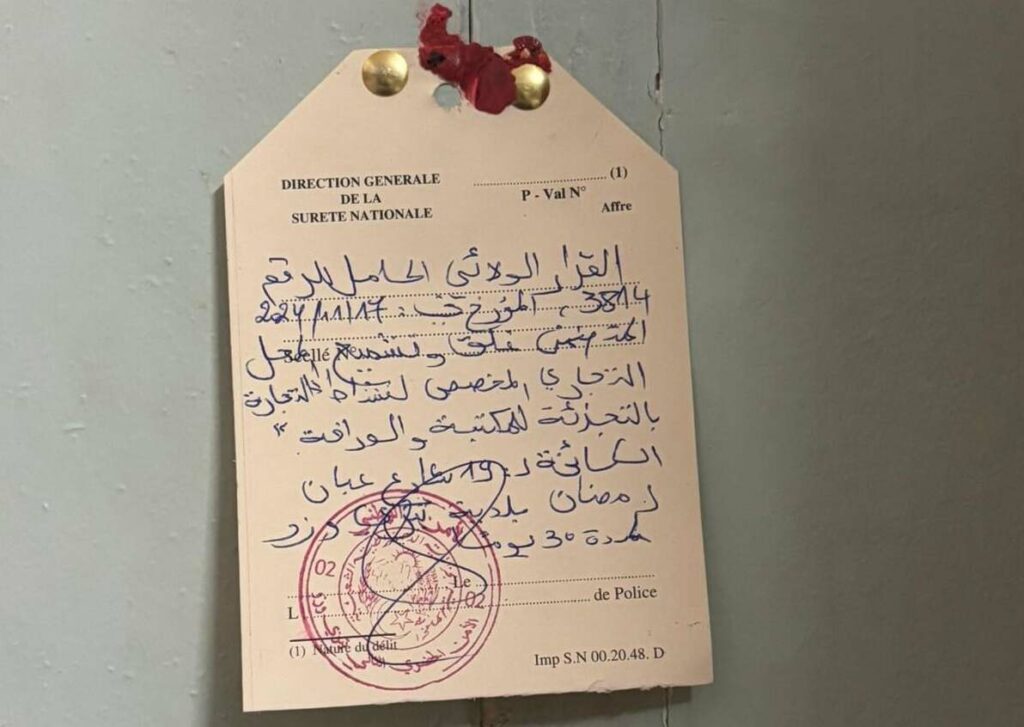 DIRECTION GENERALE
DE LA
SURETE NATIONALE
(1)
P - Val N°
Affre
القرار الولائي الحامل للرقم
3814، المؤرخ في: 2024/11/17
المتضمن غلق وتشميع المحل
Scellé N°
التجاري المخصص لنشاط "التجارة
بالتجزئة للمكتبة والوراقة"
الكائنة بـ 19 شارع عبان
رمضان بلدية تيزي وزو
لمدة 30 يوما
Le
L
de Police
(1) Nature du délit
Imp S.N 00.20.48. D
02
02
الأمن الوطني
الأمن الحضري الثاني